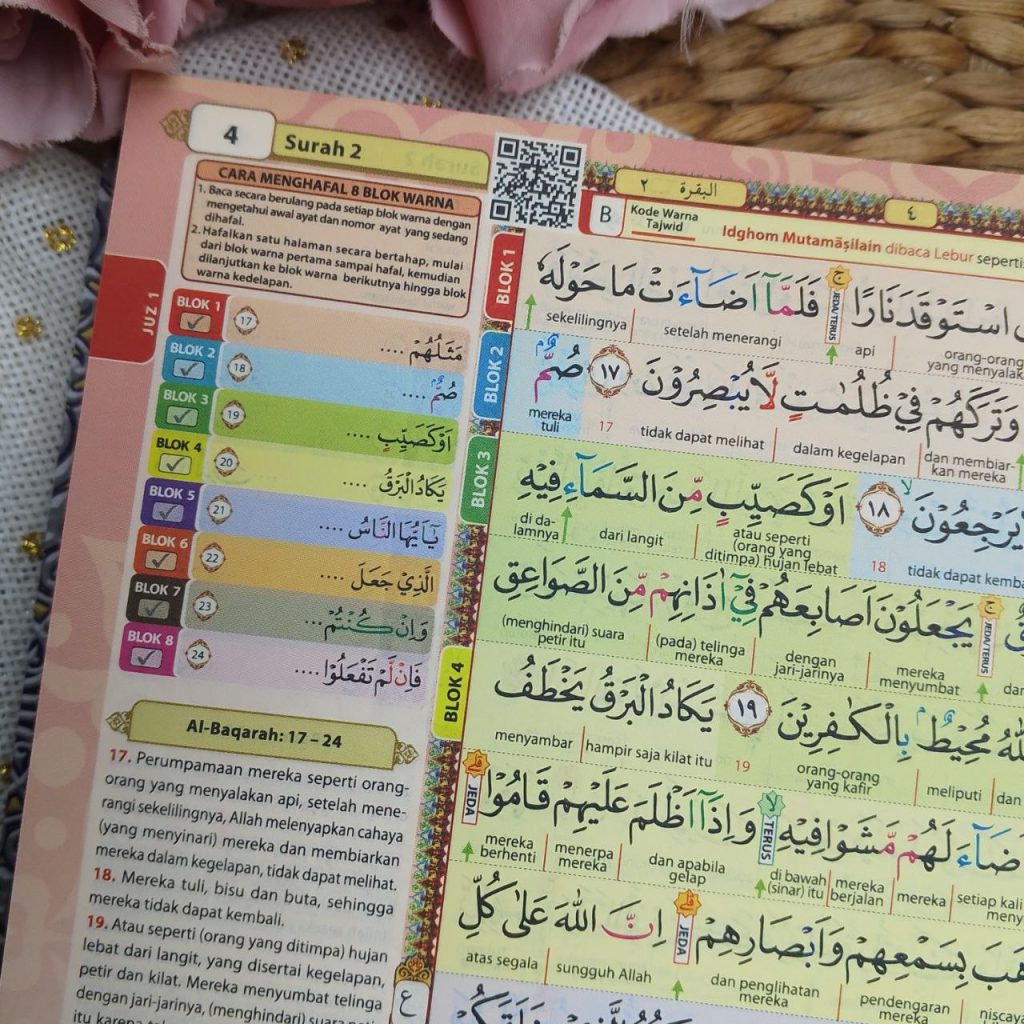 4
Surah 2
CARA MENGHAFAL 8 BLOK WARNA
1. Baca secara berulang pada setiap blok warna dengan
mengetahui awal ayat dan nomor ayat yang sedang
dihafal.
2. Hafalkan satu halaman secara bertahap, mulai
dari blok warna pertama sampai hafal, kemudian
dilanjutkan ke blok warna berikutnya hingga blok
warna kedelapan.
JUZ 1
BLOK 1 17 مَثَلُهُمْ ....
BLOK 2 18 صُمٌّ ....
BLOK 3 19 اَوْ كَصَيِّبٍ ....
BLOK 4 20 يَكَادُ الْبَرْقُ ....
BLOK 5 21 يٰٓاَيُّهَا النَّاسُ ....
BLOK 6 22 الَّذِيْ جَعَلَ ....
BLOK 7 23 وَاِنْ كُنْتُمْ ...
BLOK 8 24 فَاِنْ لَّمْ تَفْعَلُوْا ....
Al-Baqarah: 17 – 24
17. Perumpamaan mereka seperti orang-
orang yang menyalakan api, setelah mene-
rangi sekelilingnya, Allah melenyapkan cahaya
(yang menyinari) mereka dan membiarkan
mereka dalam kegelapan, tidak dapat melihat.
18. Mereka tuli, bisu dan buta, sehingga
mereka tidak dapat kembali.
19. Atau seperti (orang yang ditimpa) hujan
lebat dari langit, yang disertai kegelapan,
petir dan kilat. Mereka menyumbat telinga
dengan jari-jarinya, (menghindari) suara
itu karena
البقرة ٢
٤
B Kode Warna
Tajwid
Idghom Mutamāṡilain dibaca Lebur seperti
BLOK 1
اسْتَوْقَدَ نَارًا ۚ فَلَمَّآ اَضَاۤءَتْ مَا حَوْلَهٗ
JEDA/TERUS
orang-orang
yang menyalak
api
setelah menerangi
sekelilingnya
BLOK 2
وَتَرَكَهُمْ فِيْ ظُلُمٰتٍ لَّا يُبْصِرُوْنَ ١٧ صُمٌّ
dan membiar-
kan mereka
dalam kegelapan
tidak dapat melihat
17
mereka
tuli
BLOK 3
يَرْجِعُوْنَ ۙ ١٨ اَوْ كَصَيِّبٍ مِّنَ السَّمَاۤءِ فِيْهِ
tidak dapat kemba
18
atau seperti
(orang yang
ditimpa) hujan lebat
dari langit
di da-
lamnya
ۚ يَجْعَلُوْنَ اَصَابِعَهُمْ فِيْٓ اٰذَانِهِمْ مِّنَ الصَّوَاعِقِ
JEDA/TERUS
mereka
menyumbat
dengan
jari-jarinya
(pada) telinga
mereka
(menghindari) suara
petir itu
BLOK 4
مُحِيْطٌ ۢ بِالْكٰفِرِيْنَ ١٩ يَكَادُ الْبَرْقُ يَخْطَفُ
dan
meliputi
orang-orang
yang kafir
19
hampir saja kilat itu
menyambar
لَهُمْ مَّشَوْا فِيْهِ ۙ وَاِذَآ اَظْلَمَ عَلَيْهِمْ قَامُوْا ۗ
TERUS
JEDA
setiap kali
meny
mereka
mereka
berjalan
di bawah
(sinar) itu
dan apabila
gelap
menerpa
mereka
mereka
berhenti
بِسَمْعِهِمْ وَاَبْصَارِهِمْ ۗ اِنَّ اللّٰهَ عَلٰى كُلِّ
JEDA
niscaya
pendengaran
mereka
dan penglihatan
mereka
sungguh Allah
atas segala
ع